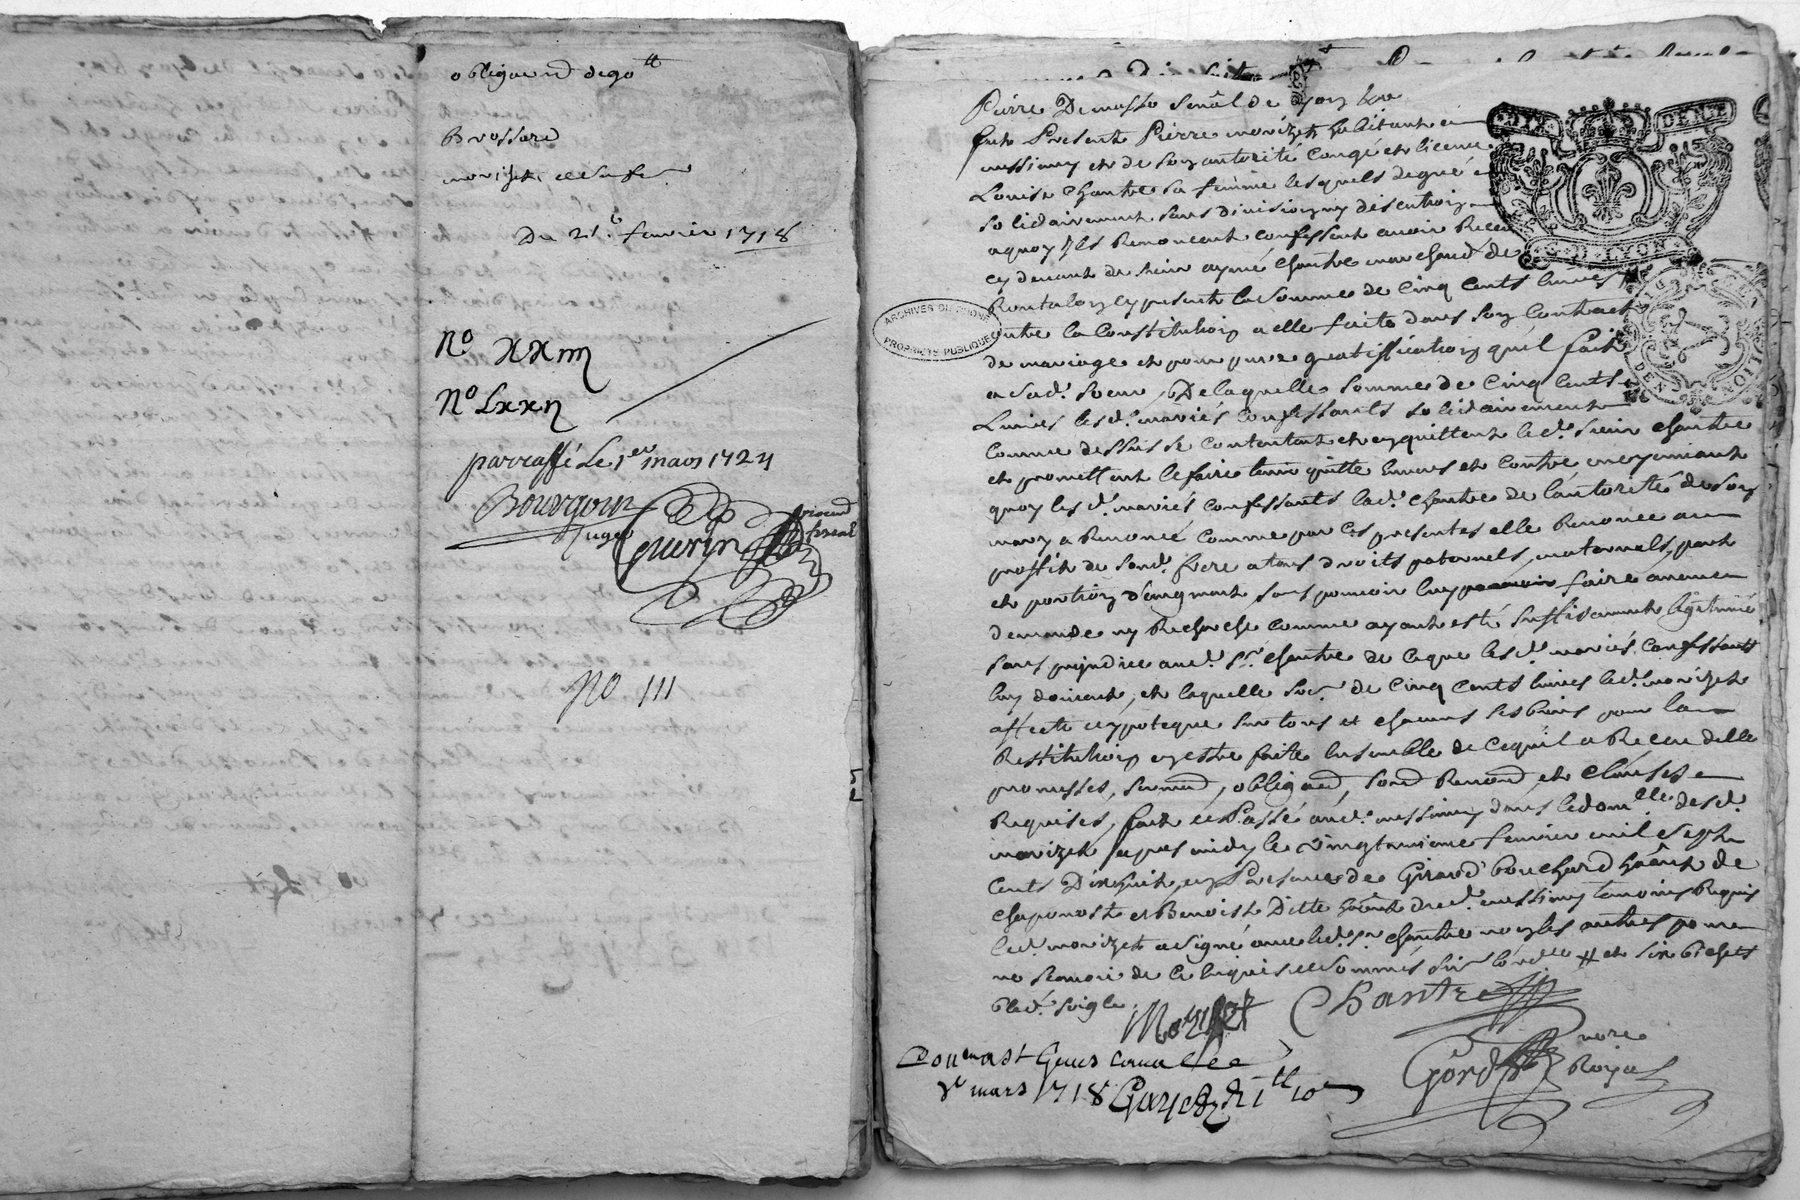 obliga&on de 90 lt
Brossard
morizet et sa fe
Du 21e. fevrier 1718
No xxiiij
No Lxxij
parraffé Le 1er mars 1724
Bourgoin
Juge
Guerin
No 111
fut Present Pierre morizet habitant a
messimy et de son autorité congé et licence
Louise Chantre sa femme lesquels de gré
solidairement sans division ny discution
a quoy ils Renoncent confessent avoir Receu
cy devant de sieur aymé Chantre marchand de
Rontalon cy present la somme de Cinq Cents livres
outre la Constitution a elle faite dans son Contract
de mariage et pour pure gratiffication qu'il fait
a sad. soeur, De laquelle somme de Cinq Cents
Livres lesd. mariés Confessants solidairement
comme dessus se contentent et en quittent led. sieur Chantre
et promettent le faire tenir quitte envers et contre, moyennant
quoy lesd. mariés confessants lad. Chantre de l'autorité de son
mary a Renoncé comme par ces presentes elle Renonce au
proffit de sond. frere a tous droits paternels, maternels, part
et portion d'augment sans pouvoir luy faire aucune
demande ny Recherche comme ayant esté suffisamment légitimée
sans prejudice aud. Sr. Chantre de ce que lesd. mariés Confessants
luy doivent, et laquelle so&. de Cinq Cents livres led. morizet
affecte et ypoteque sur tous et chacuns ses biens pour la
Restitution en estre faite ensemble de ce qu'il a Receu d'elle
promesses, serment, obliga&on, soud Renond, et clauses
Requises, fait et Passé aud. messimy dans le domlle desd.
morizet apres midy le vingt unieme fevrier mil Sept
Cents Dix huit, en Presence de Girard bouchard habitant de
chaponost et Benoist Ditte habitant dud. messimy temoins Requis
led. morizet a signé avec led. Sr Chantre non les autres pour
ne sçavoir de ce Enquis et sommés
bled. soigle
Morizet Chantre
Gord nore
Royal
mars 1718
DIX DENIE
G. D. LYON
ARCHIVES DU RHONE
PROPRIÉTÉ PUBLIQUE